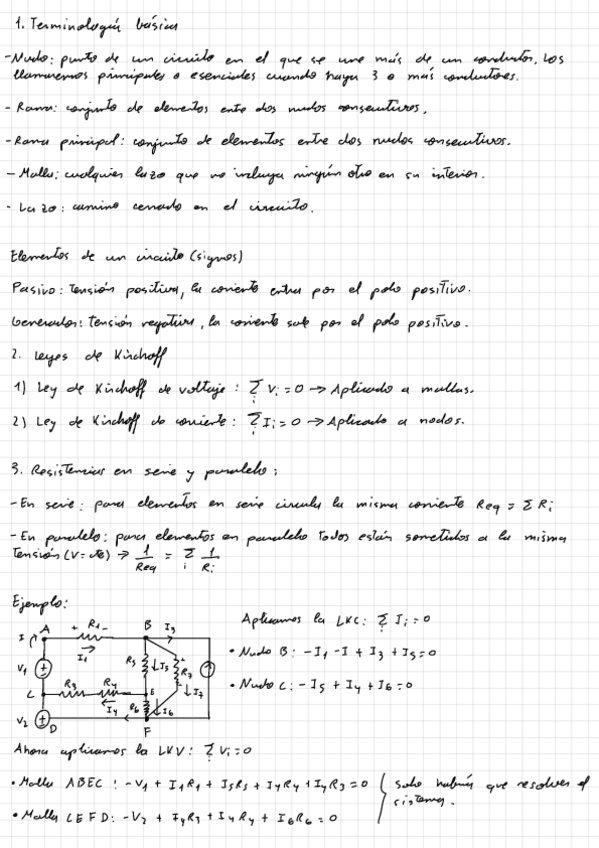 1. Terminología básica
-Nudo: punto de un circuito en el que se une más de un conductor. Los
llamaremos principales o esenciales cuando haya 3 o más conductores.
- Rama: conjunto de elementos entre dos nudos consecutivos.
-Rama principal: conjunto de elementos entre dos nudos consecutivos.
- Malla: cualquier lazo que no incluya ningún otro en su interior.
- Lazo: camino cerrado en el circuito.
Elementos de un circuito (signos)
Pasivo: Tensión positiva, la corriente entra por el polo positivo.
Generador: tensión negativa, la corriente sale por el polo positivo.
2. Leyes de Kirchoff
1) Ley de Kirchoff de voltaje: Σi Vi = 0 → Aplicado a mallas.
2) Ley de Kirchoff de corriente: Σi Ii = 0 → Aplicado a nodos.
3. Resistencias en serie y paralelo:
-En serie: para elementos en serie circula la misma corriente Req = Σ Ri
-En paralelo: para elementos en paralelo todos están sometidos a la misma
tensión (V = cte) → 1/Req = Σi 1/Ri
Ejemplo:
Aplicamos la LKC: Σi Ii = 0
A + R1 - B I3
I I1
• Nudo B: -I1 - I + I3 + I5 = 0
V1 R5 I5 R7
• Nudo C: -I5 + I4 + I6 = 0
C R3 R4 E I7
I4 R6 I6
V2 D F
Ahora aplicamos la LKV: Σi Vi = 0
• Malla ABEC: -V1 + I1R1 + I5R5 + I4R4 + I4R3 = 0
solo habría que resolver el
sistema.
• Malla CEFD: -V2 + I4R3 + I4R4 + I6R6 = 0